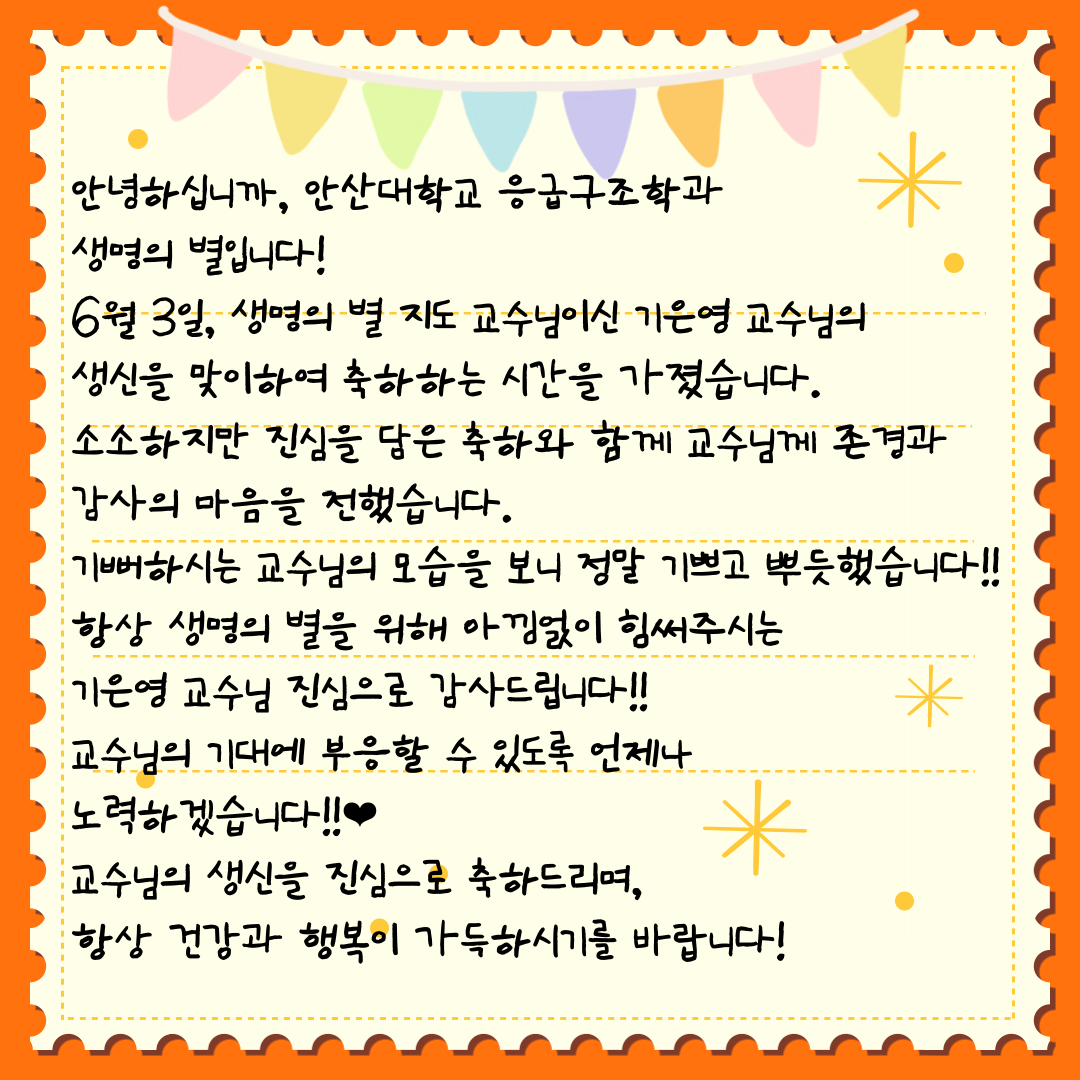 안녕하십니까, 안산대학교 응급구조학과
생명의 별입니다!
6월 3일, 생명의 별 지도 교수님이신 기은영 교수님의
생신을 맞이하여 축하하는 시간을 가졌습니다.
소소하지만 진심을 담은 축하와 함께 교수님께 존경과
감사의 마음을 전했습니다.
기뻐하시는 교수님의 모습을 보니 정말 기쁘고 뿌듯했습니다!!
항상 생명의 별을 위해 아낌없이 힘써주시는
기은영 교수님 진심으로 감사드립니다!!
교수님의 기대에 부응할 수 있도록 언제나
노력하겠습니다!!❤
교수님의 생신을 진심으로 축하드리며,
항상 건강과 행복이 가득하시기를 바랍니다!